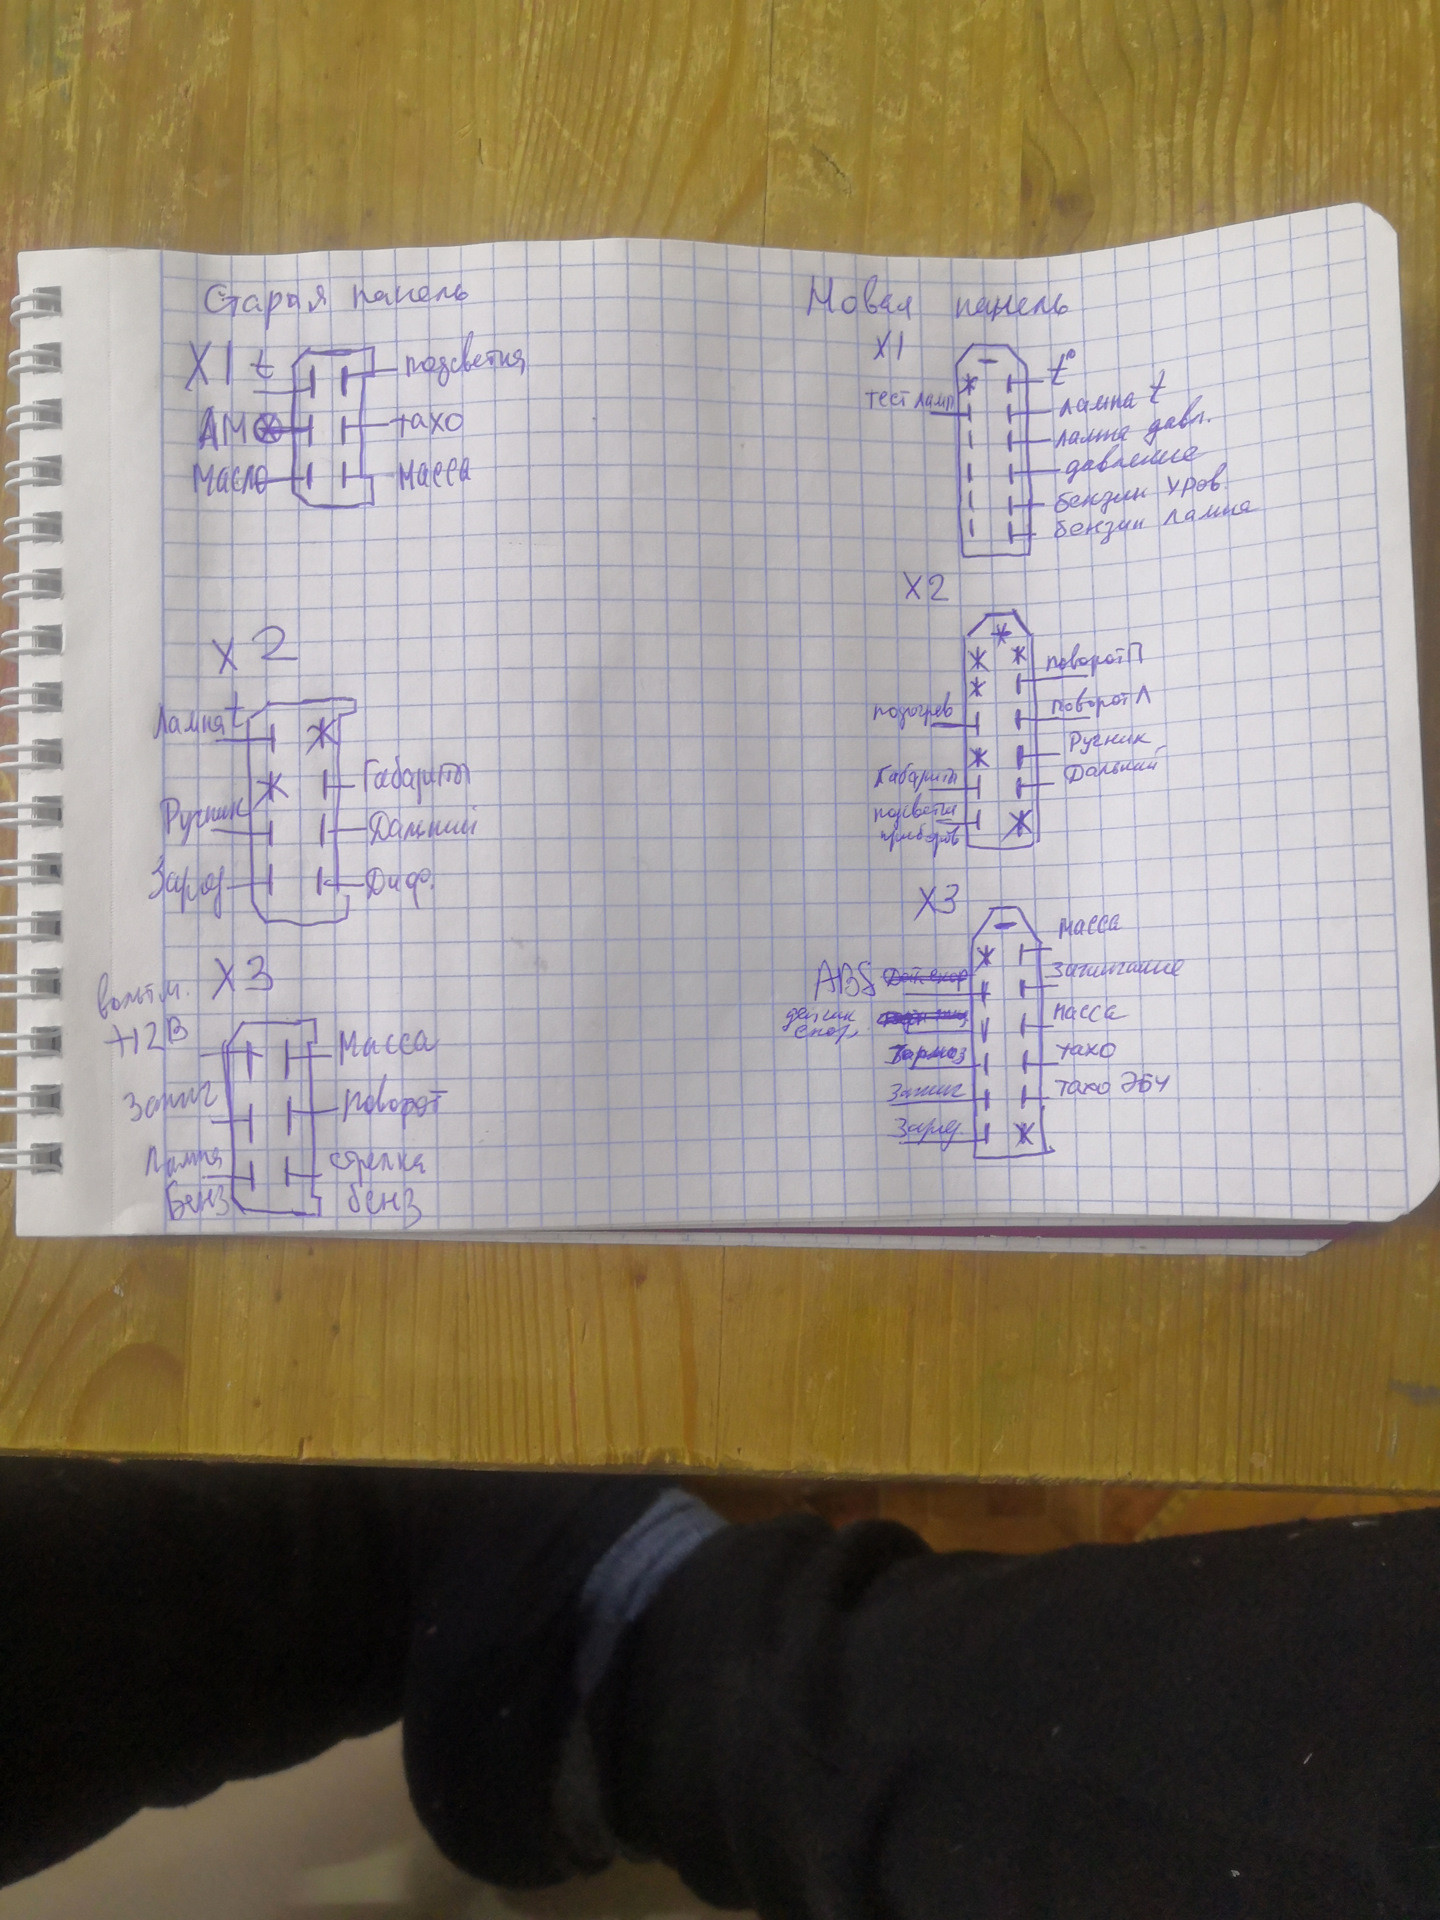 Старая панель
X1
t
подсветка
тахо
Масло
Масса
X2
Лампа t
Габариты
Ручник
Дальний
Заряд
Диф.
X3
вольтм.
+12В
Масса
Зажиг
Поворот
Лампа
Бенз
стрелка
бенз
Новая панель
X1
t°
тест ламп
лампа t
лампа давл.
давление
бензин уров.
бензин лампа
X2
поворот П
подогрев
поворот Л
Ручник
Габариты
Дальний
подсветка
приборов
X3
Масса
ABS
Зажигание
датчик
скор.
Масса
Тормоз
тахо
Зажиг
тахо ЭБУ
Заряд